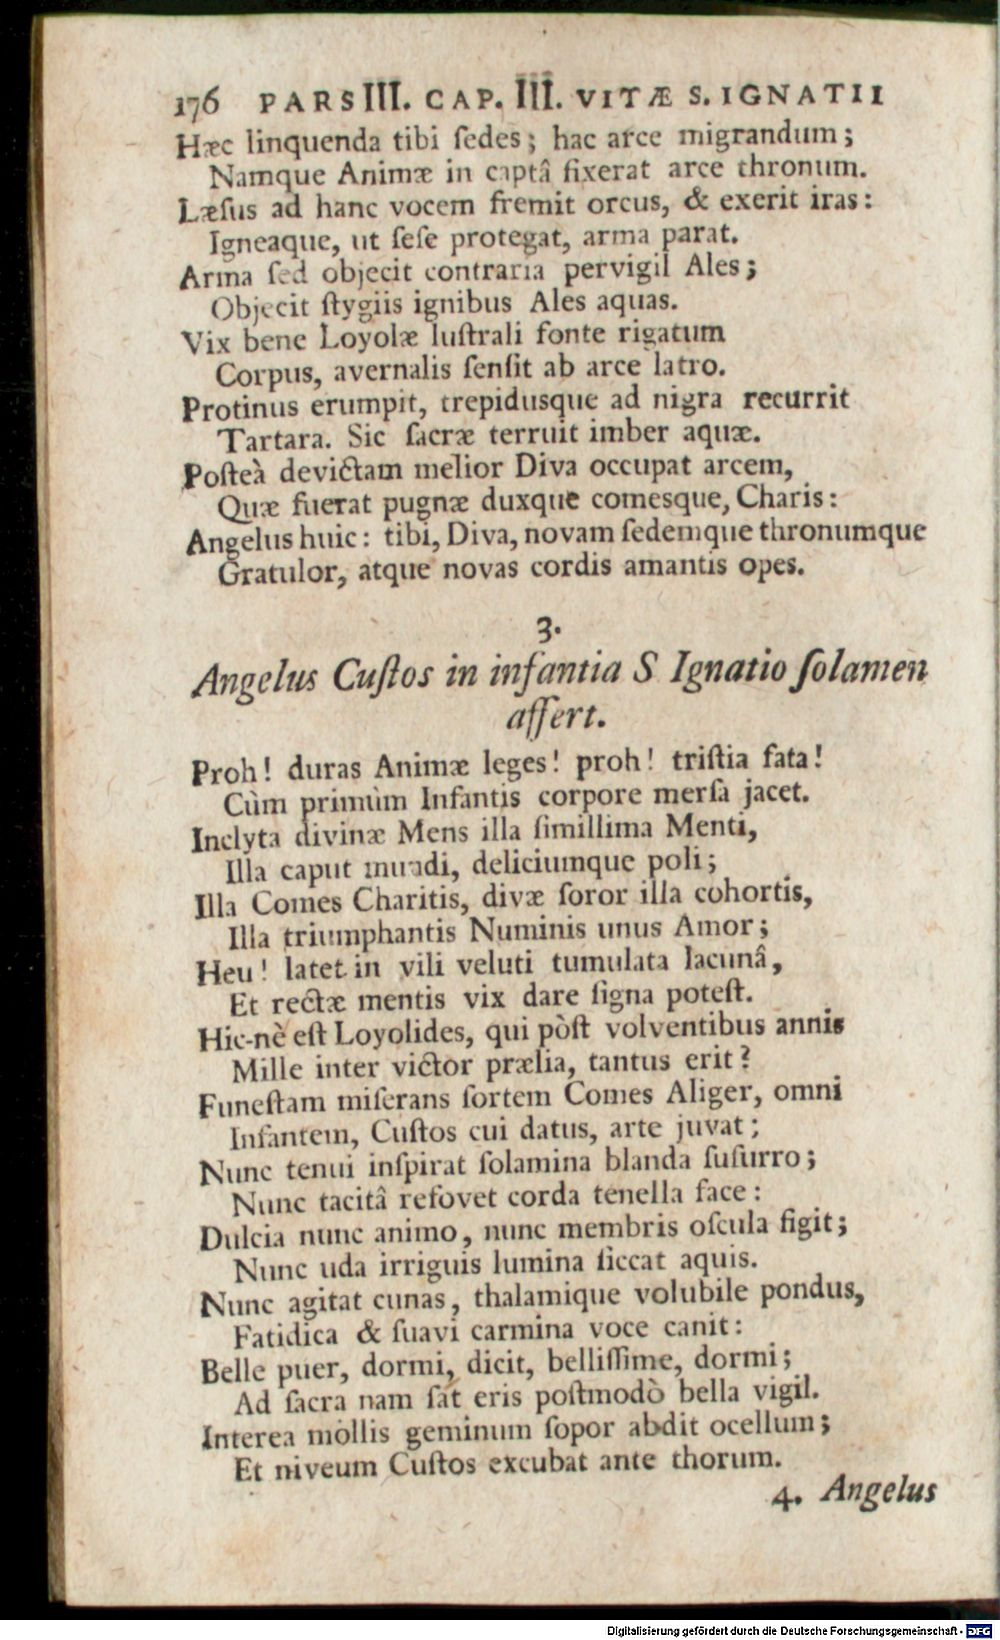 176 PARS III. CAP. III. VITÆ S. IGNATII
Hæc linquenda tibi ſedes; hac arce migrandum;
Namque Animæ in captâ fixerat arce thronum.
Læſus ad hanc vocem fremit orcus, & exerit iras:
Igneaque, ut ſeſe protegat, arma parat.
Arma ſed objecit contraria pervigil Ales;
Objecit ſtygiis ignibus Ales aquas.
Vix bene Loyolæ luſtrali fonte rigatum
Corpus, avernalis ſenſit ab arce latro.
Protinus erumpit, trepidusque ad nigra recurrit
Tartara. Sic ſacræ terruit imber aquæ.
Poſteà devictam melior Diva occupat arcem,
Quæ fuerat pugnæ duxque comesque, Charis:
Angelus huic: tibi, Diva, novam ſedemque thronumque
Gratulor, atque novas cordis amantis opes.
3.
Angelus Cuſtos in infantia S Ignatio ſolamen
affert.
Proh! duras Animæ leges! proh! triſtia fata!
Cùm primùm Infantis corpore merſa jacet.
Inclyta divinæ Mens illa ſimillima Menti,
Illa caput mundi, deliciumque poli;
Illa Comes Charitis, divæ ſoror illa cohortis,
Illa triumphantis Numinis unus Amor;
Heu! latet in vili veluti tumulata lacunâ,
Et rectæ mentis vix dare ſigna poteſt.
Hic-nè eſt Loyolides, qui pòſt volventibus annis
Mille inter victor prælia, tantus erit?
Funeſtam miſerans ſortem Comes Aliger, omni
Infantem, Cuſtos cui datus, arte juvat;
Nunc tenui inſpirat ſolamina blanda ſuſurro;
Nunc tacitâ refovet corda tenella face:
Dulcia nunc animo, nunc membris oſcula figit;
Nunc uda irriguis lumina ſiccat aquis.
Nunc agitat cunas, thalamique volubile pondus,
Fatidica & ſuavi carmina voce canit:
Belle puer, dormi, dicit, belliſſime, dormi;
Ad ſacra nam ſat eris poſtmodò bella vigil.
Interea mollis geminum ſopor abdit ocellum;
Et niveum Cuſtos excubat ante thorum.
4. Angelus
Digitalisierung gefördert durch die Deutsche Forschungsgemeinschaft - DFG